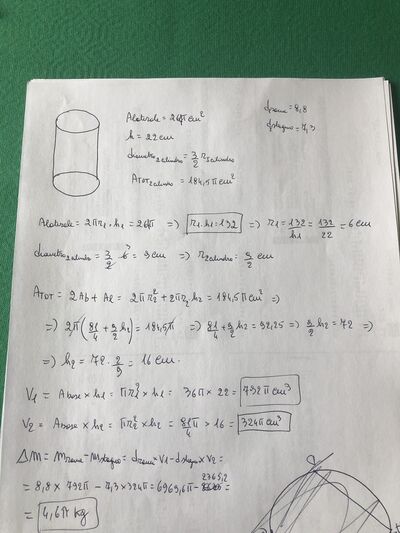 Alaterale = 264π cm²
h = 22 cm
diametro 2cilindro = 3/2 r1cilindro
ATOT 2cilindro = 184,5π cm²
drame = 8,8
dstagno = 7,3
Alaterale = 2πr1 · h1 = 264π => r1 · h1 = 132 => r1 = 132/h1 = 132/22 = 6 cm
diametro 2cilindro = 3/2 · 6 = 9 cm => r2cilindro = 9/2 cm
ATOT = 2Ab + Al = 2πr2² + 2πr2 h2 = 184,5π cm² =>
=> 2π(81/4 + 9/2 h2) = 184,5π => 81/4 + 9/2 h2 = 92,25 => 9/2 h2 = 72 =>
=> h2 = 72 · 2/9 = 16 cm.
V1 = Abase × h1 = πr1² × h1 = 36π × 22 = 792π cm³
V2 = Abase × h2 = πr2² × h2 = 81/4 π × 16 = 324π cm³
Δm = mrame - mstagno = drame × V1 - dstagno × V2 =
= 8,8 × 792π - 7,3 × 324π = 6969,6π - 2365,2 =
= 4,6π kg